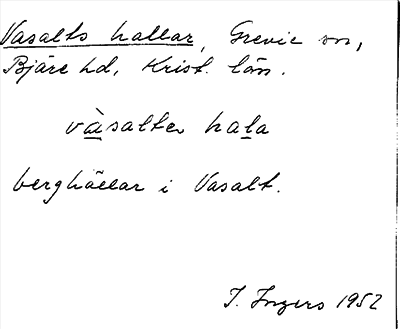 Vasalts hallar, Grevie sn,
Bjäre hd, Krist. län.
vàsaltes hala
berghällar i Vasalt.
I. Ingers 1952